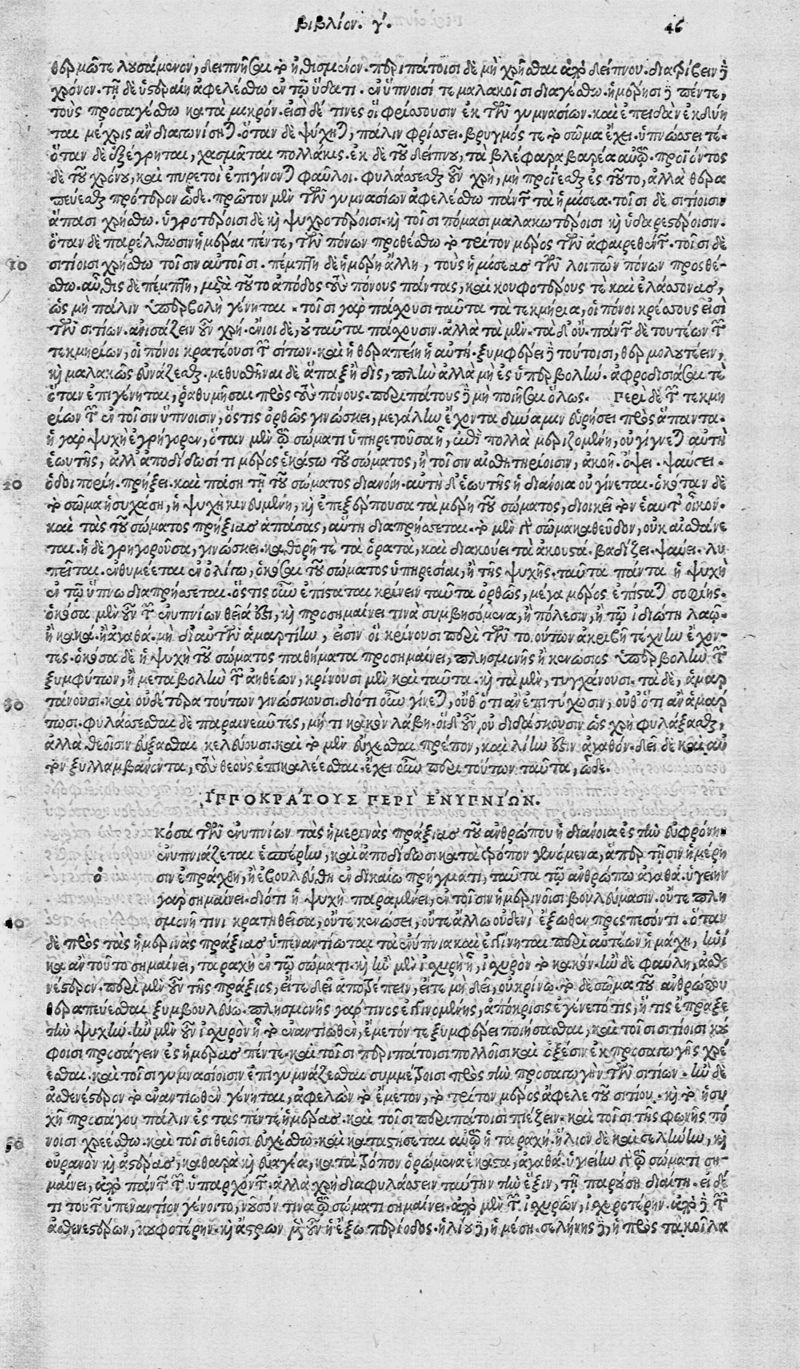 βιβλίον. γ΄. 46
θερμῶ τε λουσάμενον, δειπνῆσαι τὸ ἠθισμένον. περιπάτοισι δὲ μὴ χρῆσθαι ἀπὸ δείπνου. διατρίβειν δὲ
χρόνον. τῇ δὲ ὑστεραίῃ ἀφελέσθω ἐν τῷ ὕδατι. ἐν ὕπνοισί τε μαλακοῖσι διαγέσθω. ἡμέρῃσι δὲ πέντε,
τοὺς προσαγέσθω κατὰ μικρόν. εἰσὶ δέ τινες οἳ φρίσσουσιν ἐκ τῶν γυμνασίων. καὶ ἐπειδὰν ἐκδύν
ται μέχρις ἂν διαπονίσηται. ὅταν δὲ ψύχηται, πάλιν φρίσσει. βρυγμός τε τὸ σῶμα ἔχει. ὑπνώσσει τέ.
ὅταν δὲ ἐξέγρηται, χασμᾶται πολλάκις. ἐκ δὲ τοῦ δείπνου, τὰ βλέφαρα βαρέα αὐτῷ. προϊόντος
δὲ τοῦ χρόνου, καὶ πυρετοὶ ἐπιγίνονται φαῦλοι. φυλάσσεσθαι οὖν χρὴ, μὴ προΐεσθαι ἐς τοῦτο, ἀλλὰ θερα
πεύεσθαι πρότερον ὧδε. πρῶτον μὲν τῶν γυμνασίων ἀφελέσθω πάντα τὰ ἡμίσεα. τοῖσι δὲ σιτίοισιν
ἅπασι χρήσθω. ὑγροτέροισι δὲ καὶ ψυχροτέροισι. καὶ τοῖσι πόμασι μαλακωτέροισι καὶ ὑδαρεστέροισιν.
ὅταν δὲ παρέλθωσιν ἡμέραι πέντε, τῶν πόνων προσθέσθω τὸ τρίτον μέρος τῶν ἀφαιρεθέντων. τοῖσι δὲ
10 σιτίοισι χρήσθω τοῖσιν αὐτοῖσι. πέμπτῃ δὲ ἡμέρῃ ἄλλῃ, τοὺς ἡμίσεας τῶν λοιπῶν πόνων προσθέ-
σθω. αὖθις δὲ πέμπτῃ, μετὰ τοῦτο ἀπόδος τοὺς πόνους πάντας, καὶ κουφοτέρους τε καὶ ἐλάσσονας,
ὡς μὴ πάλιν ὑπερβολὴ γένηται. τοῖσι γὰρ πάσχουσι ταῦτα τὰ τεκμήρια, οἱ πόνοι κρέσσους εἰσὶ
τῶν σιτίων. ἀνισάζειν οὖν χρή. ἔνιοι δὲ, οὐ ταῦτα πάσχουσιν. ἀλλὰ τὰ μὲν. τὰ δ' οὔ. πάντων δὲ τουτέων τῶν
τεκμηρίων, οἱ πόνοι κρατέουσι τῶν σίτων. καὶ ἡ θεραπείη ἡ αὐτή. ξυμφέρει δὲ τούτοισι, θερμολουτέειν,
καὶ μαλακῶς εὐνάζεσθαι. μεθυσθῆναι δὲ ἅπαξ ἢ δὶς, πλὴν ἀλλὰ μὴ ἐς ὑπερβολήν. ἀφροδισιάσαι τὲ
ὅταν ἐπιγένηται, ῥαθυμῆσαι πρὸς τοὺς πόνους. περιπάτους δὲ μὴ ποιῆσαι ὅλως. Περὶ δὲ τεκμη
ρίων τῶν ἐν τοῖσιν ὕπνοισιν, ὅστις ὀρθῶς γινώσκει, μεγάλην ἔχοντα δύναμιν εὑρήσει πρὸς ἅπαντα.
ἡ γὰρ ψυχὴ ἐγρηγορῶν, ὅταν μὲν τῷ σώματι ὑπηρετοῦσα ᾖ, ἐπὶ πολλὰ μεριζομένη, οὐ γίνεται αὐτὴ
ἑωυτῆς, ἀλλ' ἀποδίδωσί τι μέρος ἑκάστῳ τοῦ σώματος, ἢ τοῖσιν αἰσθητηρίοισιν, ἀκοῇ. ὄψει. ψαύσει.
20 ὁδοιπορίῃ. πρήξει. καὶ πάσῃ τῇ τοῦ σώματος διανοίῃ. αὐτὴ δ' ἑωυτῆς ἡ διάνοια οὐ γίνεται. ὁκόταν δὲ
τὸ σῶμα ἡσυχάσῃ, ἡ ψυχὴ κινευμένη, καὶ ἐπεξέρπουσα τὰ μέρη τοῦ σώματος, διοικεῖ τὸν ἑαυτῆς οἶκον.
καὶ τὰς τοῦ σώματος πρήξιας ἁπάσας, αὕτη διαπρήσσεται. τὸ μὲν γὰρ σῶμα καθεῦδον, οὐκ αἰσθάνε
ται. ἡ δὲ γρηγοροῦσα, γινώσκει. καθορῇ τὲ τὰ ὁρατὰ, καὶ διακούει τὰ ἀκουστά. βαδίζει. ψαύει. λυ
πεῖται. ἐνθυμέεται ἐν ὀλίγῳ, ὁκόσαι τοῦ σώματος ὑπηρεσίαι, ἢ τῆς ψυχῆς. ταῦτα πάντα ἡ ψυχὴ
ἐν τῷ ὕπνῳ διαπρήσσεται. ὅστις οὖν ἐπίσταται κρίνειν ταῦτα ὀρθῶς, μέγα μέρος ἐπίσταται σοφίης.
ὁκόσα μὲν οὖν τῶν ἐνυπνίων θεῖά ἐστι, καὶ προσημαίνει τινὰ συμβησόμενα, ἢ πόλεσιν, ἢ τῷ ἰδιώτῃ λαῷ.
ἢ κακὰ. ἢ ἀγαθὰ. μὴ δι' αὐτῶν ἁμαρτίην, εἰσὶν οἳ κρίνουσι περὶ τῶν τοιούτων ἀκριβῆ τέχνην ἔχον-
τες. ὁκόσα δὲ ἡ ψυχὴ τοῦ σώματος παθήματα προσημαίνει, πλησμονῆς ἢ κενώσιος ὑπερβολὴν τῶν
ξυμφύτων, ἢ μεταβολὴν τῶν ἀηθέων, κρίνουσι μὲν καὶ ταῦτα. καὶ τὰ μὲν, τυγχάνουσι. τὰ δὲ, ἁμαρ
30 τάνουσι. καὶ οὐδέτερα τούτων γινώσκουσι. διότι οὕτω γίνεται, οὔθ' ὅτι ἂν ἐπιτύχωσιν, οὔθ' ὅτι ἂν ἁμάρ
τωσι. φυλάσσεσθαι δὲ παραινεῦντες, μή τι κακὸν λάβῃ. οἱ δ' οὖν οὐ διδάσκουσιν ὡς χρὴ φυλάξασθαι,
ἀλλὰ θεοῖσιν εὔξασθαι κελεύουσι. καὶ τὸ μὲν εὔχεσθαι πρέπον, καὶ λίην ἐστὶν ἀγαθόν. δεῖ δὲ καὶ αὐ
τὸν ξυλλαμβάνοντα, τοὺς θεοὺς ἐπικαλέεσθαι. ἔχει οὕτω περὶ τούτων ταῦτα, ὧδε.
ἹΠΠΟΚΡΆΤΟΥΣ ΠΕΡῚ ἘΝΥΠΝΊΩΝ.
ὁ κόσα τῶν ἐνυπνίων τὰς ἡμερινὰς πράξιας τοῦ ἀνθρώπου ἡ διάνοια ἐς τὴν εὐφρόνην
ἐνυπνιάζεται ἑσπέρην, καὶ ἀποδίδωσι κατὰ τρόπον γενόμενα, ἅπερ τῇσιν ἡμέρῃ
σιν ἐπράχθη, ἢ ἐβουλεύθη ἐν δικαίῳ πρήγματι, ταῦτα τῷ ἀνθρώπῳ ἀγαθά. ὑγιείην
γὰρ σημαίνει. διότι ἡ ψυχὴ παραμένει, ἐν τοῖσιν ἡμερινοῖσι βουλεύμασιν. οὔτε πλη
40 σμονῇ τινι κρατηθεῖσα, οὔτε κενώσει, οὔτε ἄλλῳ οὐδενὶ ἔξωθεν προσπεσόντι. ὅταν
δὲ πρὸς τὰς ἡμερινὰς πράξιας ὑπεναντιῶται τὰ ἐνύπνια καὶ ἐγγίνηται περὶ αὐτέων ἡ μάχη, ἢν ἦ
καὶ ἂν τοῦτο σημαίνει, ταραχὴ ἐν τῷ σώματι. καὶ ἢν μὲν ἰσχυρὴ ᾖ, ἰσχυρὸν τὸ κακόν. ἢν δὲ φαύλη, ἀσθε
νέστερον. περὶ μὲν οὖν τῆς πράξιος, εἴτε δεῖ ἀποτρέπειν, εἴτε μὴ δεῖ, οὐ κρίνω. τὸ δὲ σῶμα τοῦ ἀνθρώπου
θεραπεύεσθαι ξυμβουλεύω. πλησμονῆς γάρ τινος ἐγγινομένης, ἀπόκρισις ἐγένετό τις, ἥ τις ἐτάραξε
τὴν ψυχήν. ἢν μὲν οὖν ἰσχυρὸν ᾖ τὸ ἐναντιωθὲν, ἔμετόν τε ξυμφέρει ποιήσασθαι, καὶ τοῖσι σιτίοισι κού
φοισι προσάγειν ἐς ἡμέρας πέντε. καὶ τοῖσι περιπάτοισι πολλοῖσι καὶ ὀξέσιν ἐκ προσαγωγῆς χρέ
εσθαι. καὶ τοῖσι γυμνασίοισιν ἐπιγυμνάζεσθαι συμμέτροισι πρὸς τὴν προσαγωγὴν τῶν σιτίων. ἢν δὲ
ἀσθενέστερον τὸ ἐναντιωθὲν γένηται, ἀφελὼν τὸ ἔμετον, τὸ τρίτον μέρος ἄφελε τοῦ σιτίου. καὶ τὸ ἡσυ
χῇ προσάγου πάλιν ἐς τὰς πέντε ἡμέρας. καὶ τοῖσι περιπάτοισι πιέζειν. καὶ τοῖσι τῆς φωνῆς πό
50 νοισι χρεέσθω. καὶ τοῖσι θεοῖσι εὐχέσθω. καὶ καταστήσεται αὐτῷ ἡ ταραχή. ἥλιον δὲ καὶ σελήνην, καὶ
οὐρανὸν καὶ ἀστέρας, καθαρὰ καὶ εὐαγέα, κατὰ τρόπον ὁρώμενα ἕκαστα, ἀγαθά. ὑγιείην γὰρ τῷ σώματι ση-
μαίνει, ἀπὸ πάντων τῶν ὑπαρχόντων. ἀλλὰ χρὴ διαφυλάσσειν ταύτην τὴν ἕξιν, τῇ παρούσῃ διαίτῃ. εἰ δέ
τι τούτων ὑπεναντίον γένοιτο, νοῦσόν τινα τῷ σώματι σημαίνει. ἀπὸ μὲν τῶν ἰσχυρῶν, ἰσχυροτέρην. ἀπὸ δὲ τῶν
ἀσθενεστέρων, κουφοτέρην. καὶ ἄστρων μὲν οὖν ἡ ἔξω περίοδος. ἡλίου δὲ, ἡ μέση. σελήνης δὲ, ἡ πρὸς τὰ κοῖλα